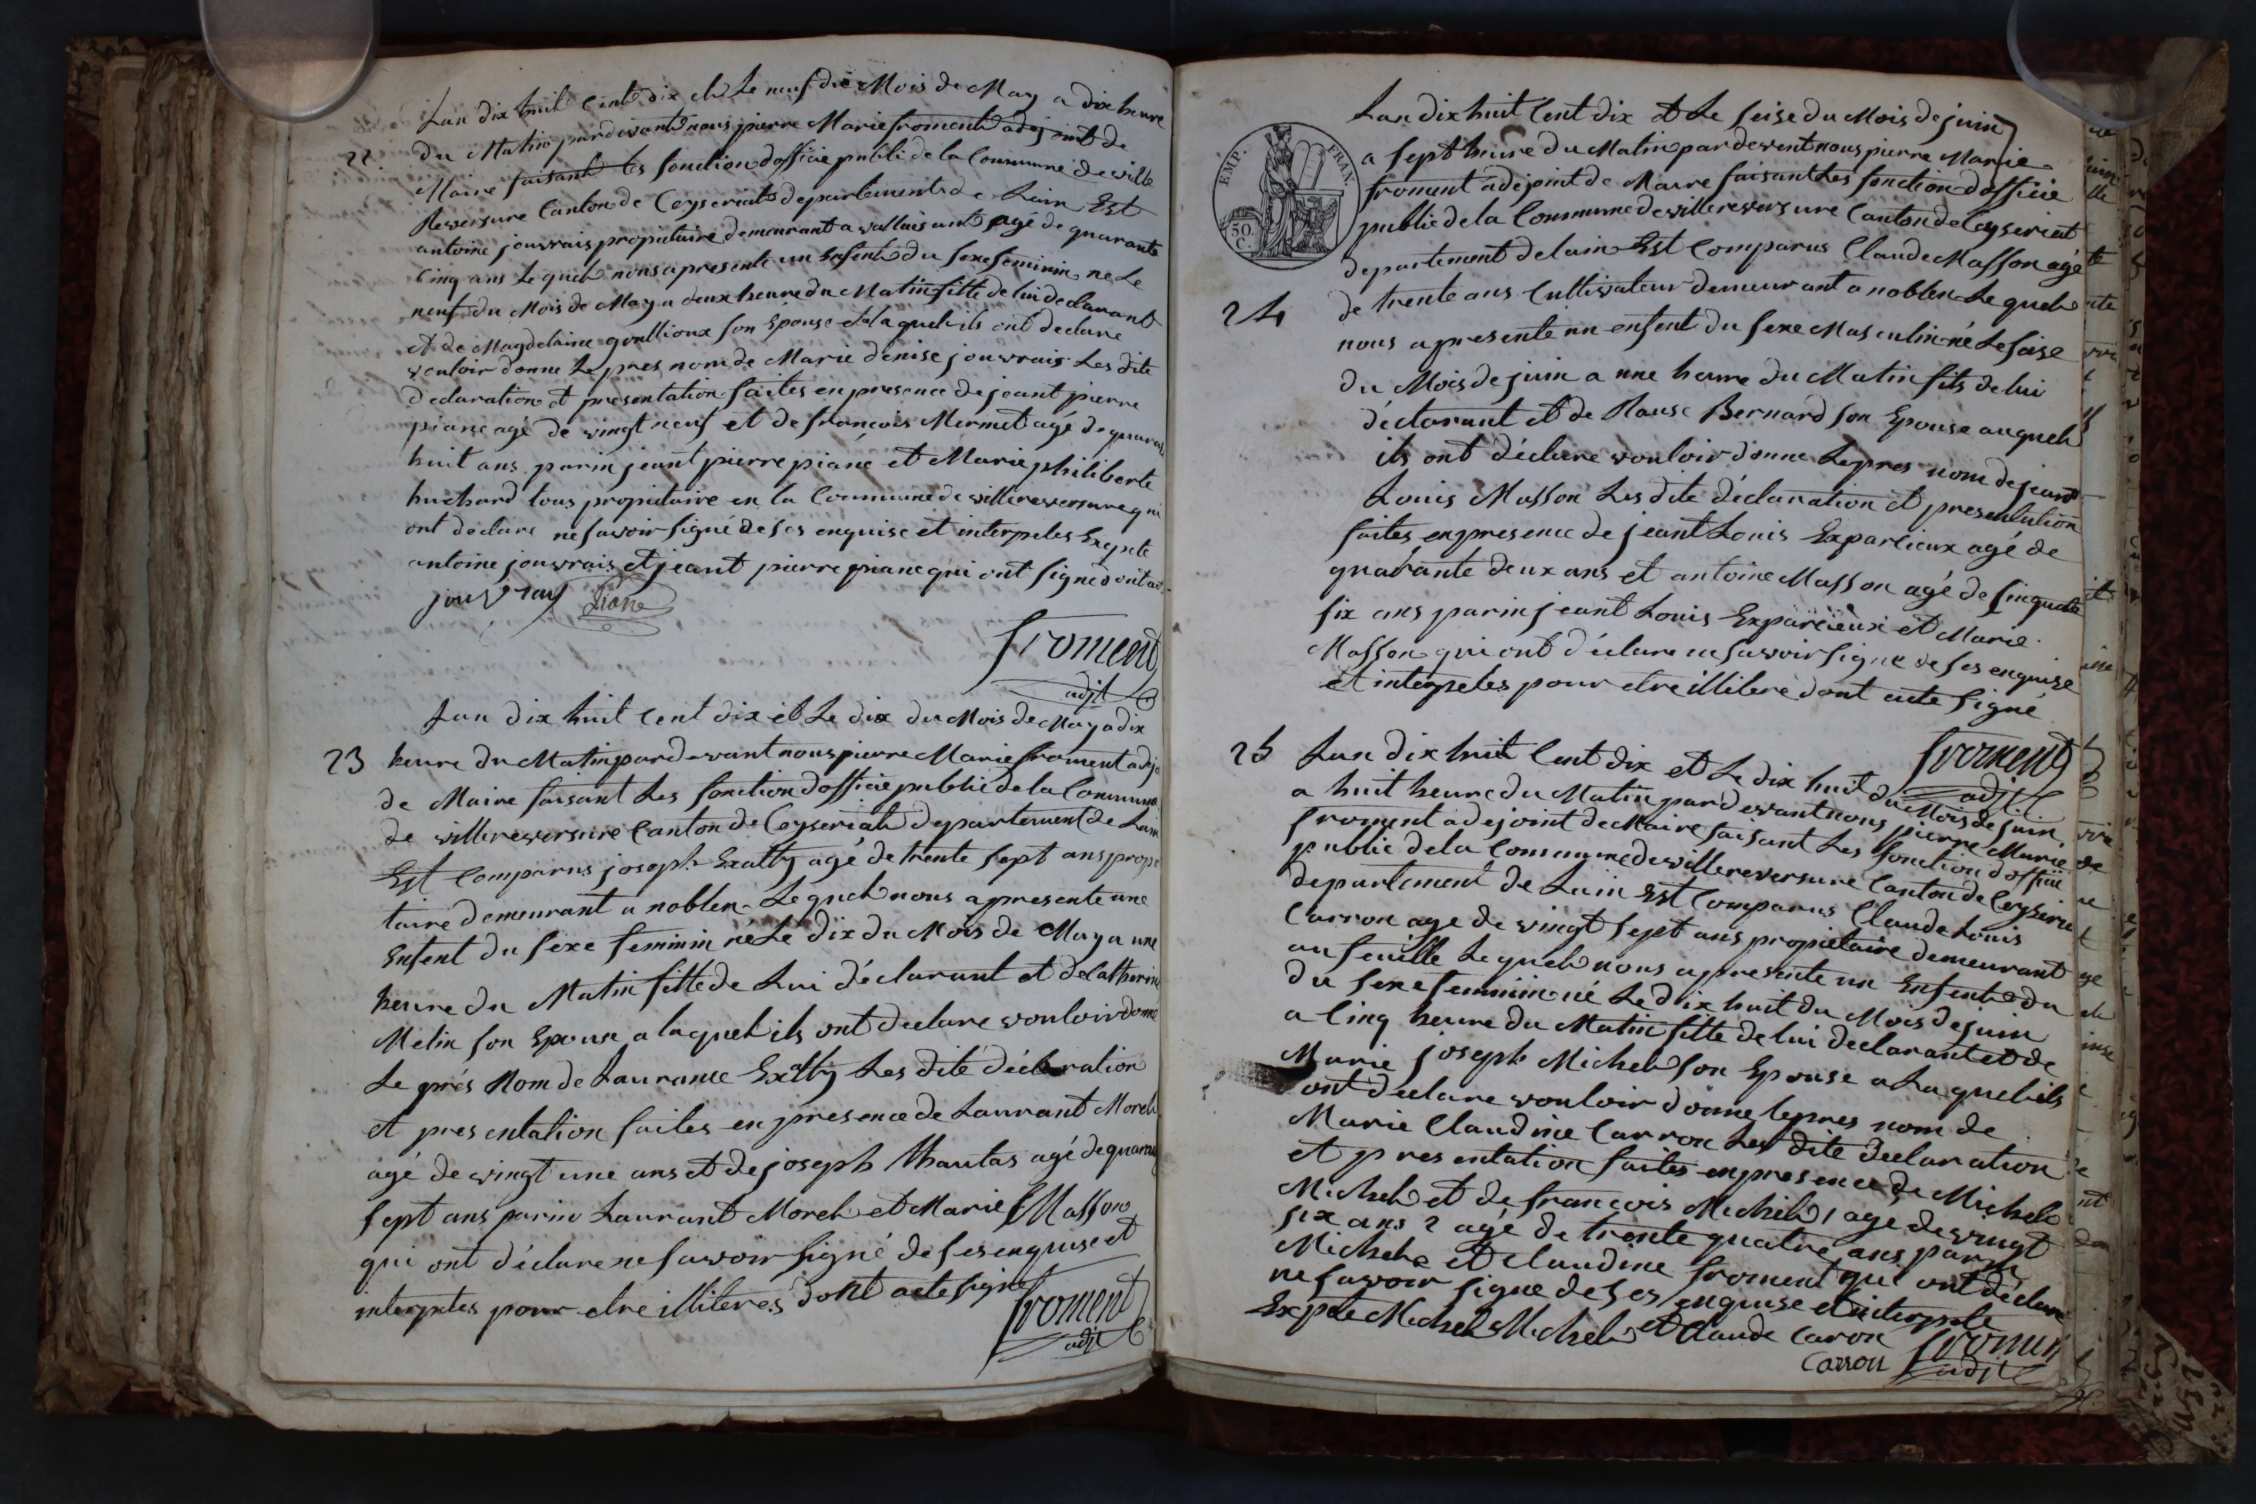 Lan dix huit Cent dix et Le neuf du Mois de May a dix heure
22 du Matin pardevant nous pierre Marie froment adejoint de
Maire faisant les fonction dofficie publi de la Commune de ville
Reversure Canton de Ceyseriat departement de Lain Est
antoine jouvrais propietaire demeurant a agé de quarante
Cinq ans Lequel nous apresente un Enfent du sexe feminin ne Le
neuf du Mois de May a deux heure du Matin fille de lui declarant
et de Magdelaine goullioux son Epouse a laquel ils ont declare
vouloir donne Le pres nom de Marie denise jouvrais Les dite
declaration et presentation faites en presence de jeant pierre
piane agé de vingt neuf et de françois Mermet agé de quarante
huit ans parin jeant pierre piane et Marie philiberte
huchard tous propietaire en la Commune de villereversure qui
ont declare ne savoir signé de ses enquise et interpeles Exepte
antoine jouvrais et jeant pierre piane qui ont signé dont acte
jouvray Piane
froment
adjt
Lan dix huit Cent dix et Le dix du Mois de May a dix
23 heure du Matin pardevant nous pierre Marie froment adjo
de Maire faisant Les fonction dofficie publié de la Commune
de villereversure Canton de Ceyseriat departement de Lain
Est Comparus joseph Exalty agé de trente sept ans propie
taire demeurant a noblen Lequel nous apresente une
Enfent du sexe feminin né Le dix du Mois de May a une
heure du Matin fille de Lui déclarant et de Catherine
Melin son Epouse a laquel ils ont declare vouloir donné
Le prés Nom de Laurance Exalty Les dité déclaration
et presentation faites en presence de Laurant Morel
agé de vingt une ans et de joseph thautas agé de quarante
sept ans parin Laurant Morel et Marie Masson
qui ont déclare ne savoir signé de ses enquise et
interpetes pour etre illiteres dont acte signe
froment
adjt
EMP. FRAN.
50. C.
Lan dix huit Cent dix et Le seise du Mois de juin
a sept heure du Matin pardevent nous pierre Marie
froment adejoint de Maire faisant Les fonction dofficie
publie de la Commune de villereversure Canton de Ceyseriat
departement de lain Est Comparus Claude Masson agé
24 de trente ans Cultivateur demeurant a noblen Le quel
nous apresente un enfent du sexe Masculin né Le seise
du Mois de juin a une heure du Matin fils de lui
déclarant et de Rause Bernard son Epouse auquel
ils ont déclare vouloir donne Le pres nom de jeant
Louis Masson Les dite déclaration et presentation
faites en presence de jeant Louis Exparcieux agé de
quarante deux ans et antoine Masson agé de sinquante
six ans parin jeant Louis Exparcieux et Marie
Masson qui ont déclare ne savoir signe de ses enquise
et interpeles pour etre illitere dont acte signé
froment
adjt
25 Lan dix huit Cent dix et Le dix huit du Mois de juin
a huit heure du Matin pardevant nous pierre Marie
froment adejoint de Maire faisant Les fonction dofficie
publié de la Commune de villereversure Canton de Ceyseria
departement de Lain Est Comparus Claude Louis
Carron age de vingt sept ans propietaire demeurant
au feuille Le quel nous apresente un Enfent du
du sexe feminin né Le dix huit du Mois de juin
a Cinq heure du Matin fille de lui declarant et de
Marie joseph Michel son Epouse a Laquel ils
ont declare vouloir donne le pres nom de
Marie Claudine Carron Les dite declaration
et presentation faites en presence de Michel
Michel et de françois Michel 1 age de vingt
six ans 2 agé de trente quatre ans parin
Michel et Claudine froment qui ont déclare
ne savoir signe de ses enquise et interpele
Exepte Michel Michel et Claude Caron
Carron
froment
adjt